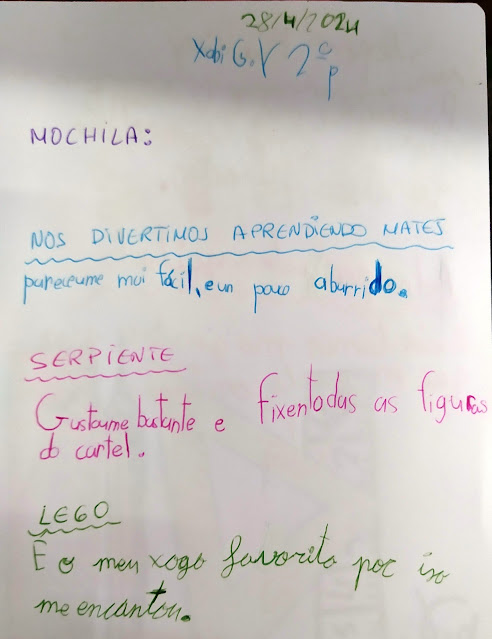 28/4/2024
Xabi G.V 2º p
MOCHILA:
NOS DIVERTIMOS APRENDIENDO MATES
pareceume moi fácil, e un pouco aburrido.
SERPIENTE
Gustoume bastante e fixen todas as figuras
do cartel.
LEGO
É o meu xogo favorito por iso
me encantou.